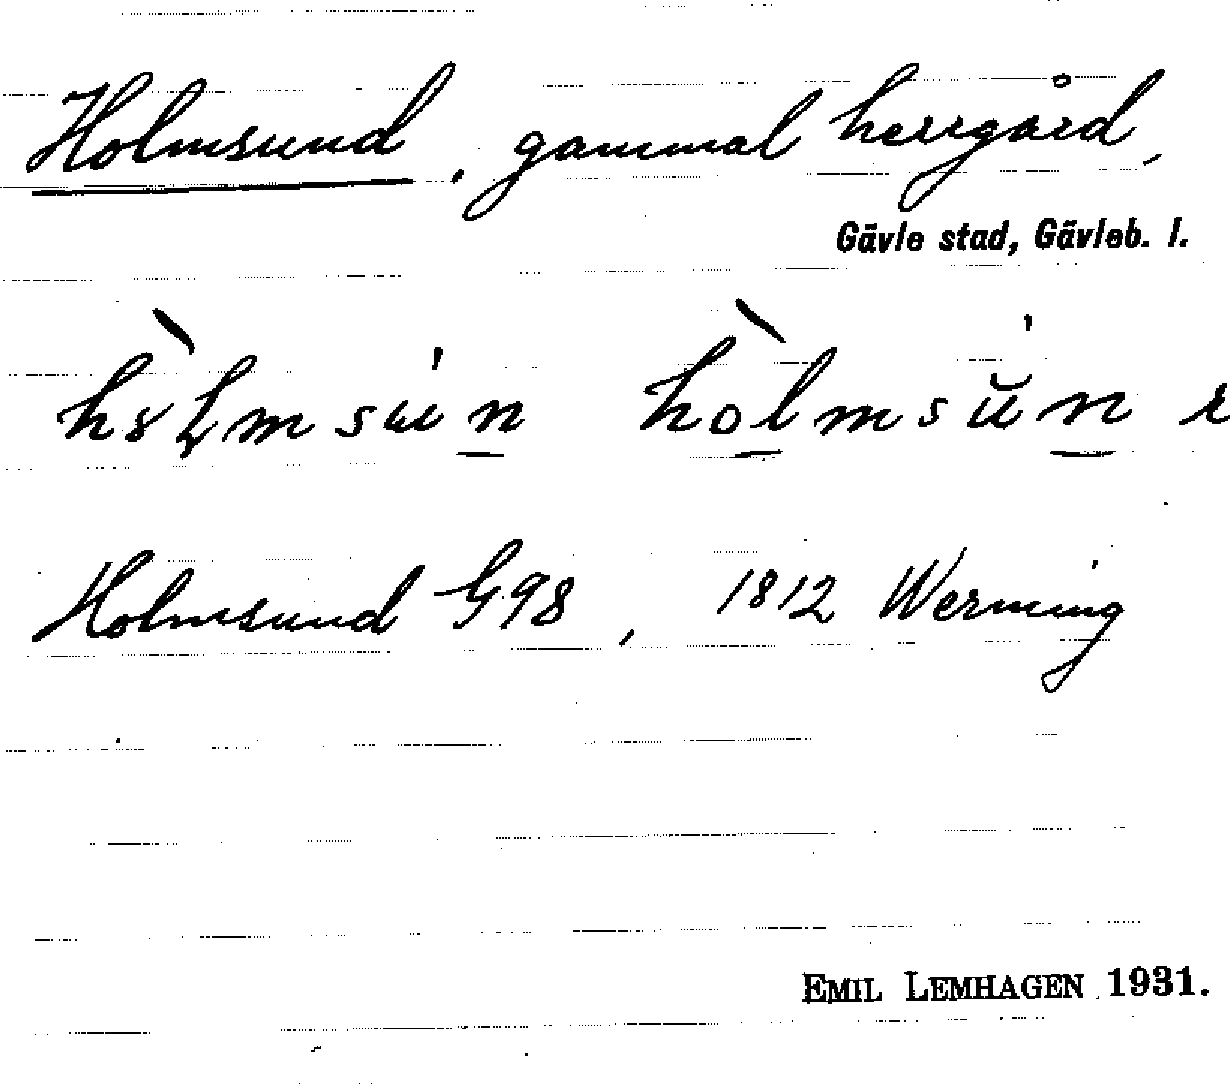 Holmsund, gammal herrgård,
Gävle stad, Gävleb. l.
Holmsund G98, 1812 Werming
EMIL LEMHAGEN 1931.